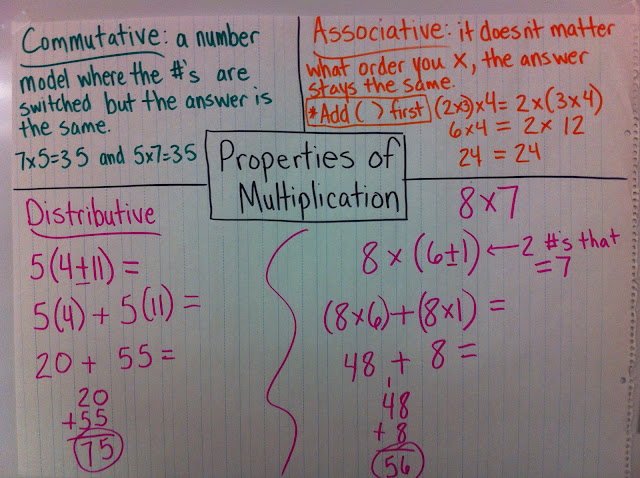 Commutative: a number
model where the #'s are
switched but the answer is
the same.
7x5=35 and 5x7=35
Associative: it doesn't matter
what order you x, the answer
stays the same.
*Add ( ) first (2x3)x4= 2x(3x4)
6x4 = 2x 12
24 = 24
Properties of
Multiplication
Distributive
5(4+11) =
5(4) + 5(11) =
20 + 55 =
20
+55
75
8x7
8 x (6+1) ← 2 #'s that
= 7
(8x6)+(8x1) =
48 + 8 =
1
48
+ 8
56